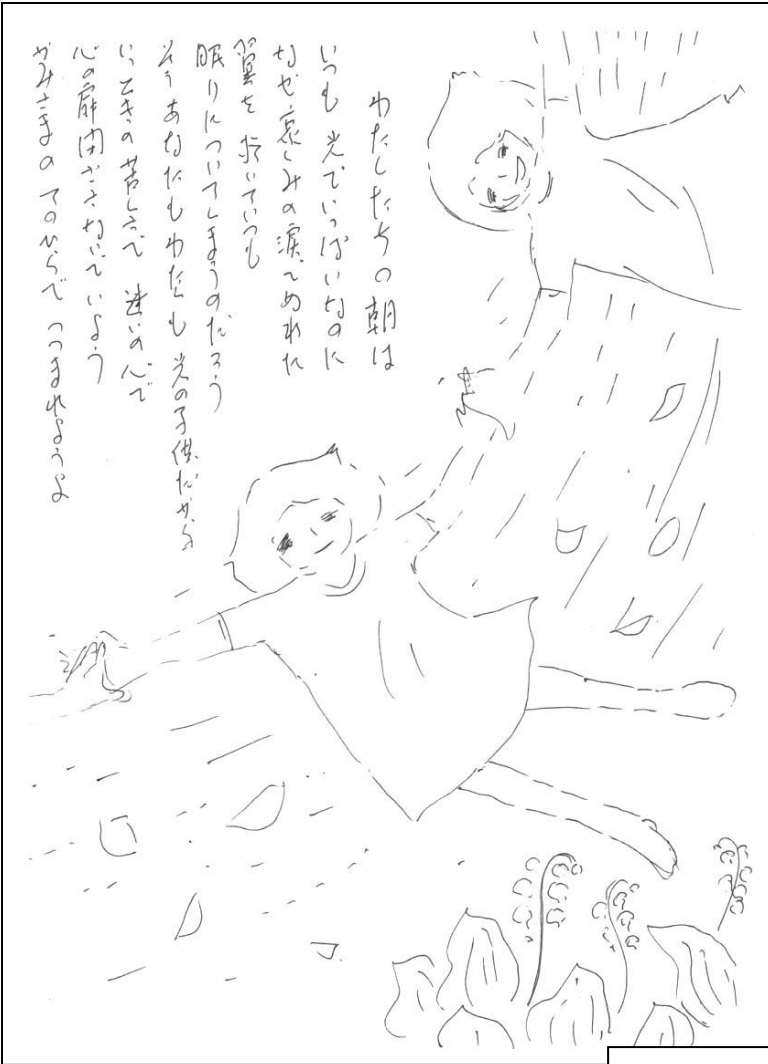 わたしたちの朝は
いつも光でいっぱいなのに
なぜ哀しみの涙でぬれた
翼を抱いていつも
眠りについてしまうのだろう
そうあなたもわたしも光の子供だから
いっときの苦しさで 迷いの心で
心の扉閉ざさないでいよう
かみさまのてのひらで つつまれようよ